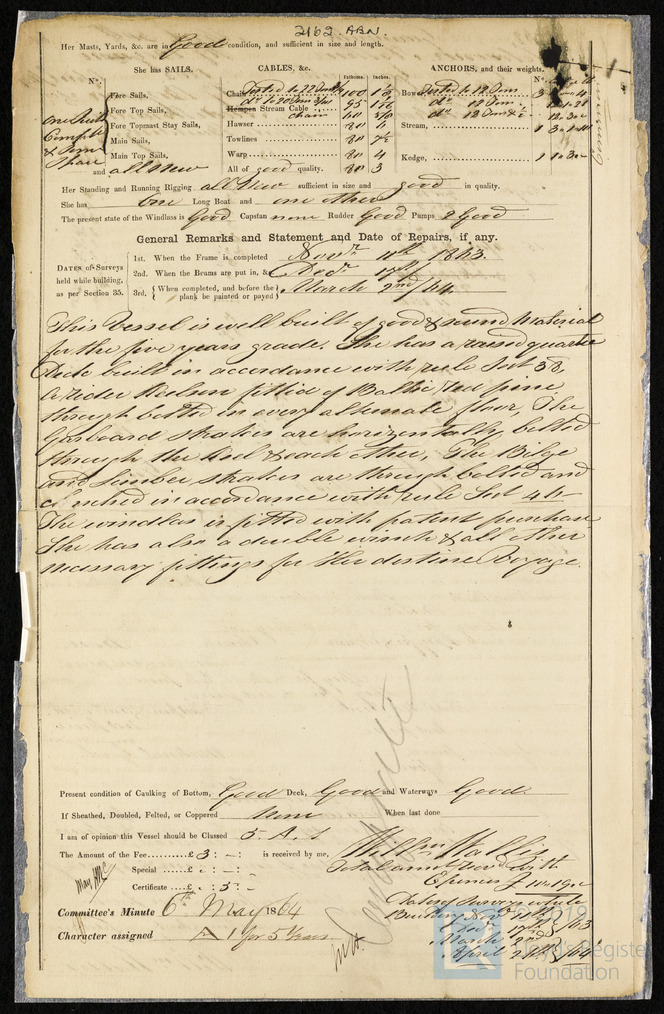 2162 ABN.
Her Masts, Yards, &c. are in Good condition, and sufficient in size and length.
She has SAILS.
CABLES, &c.
ANCHORS, and their weights.
No.
Fathoms. Inches.
No.
Fore Sails,
Fore Top Sails,
Fore Topmast Stay Sails,
Main Sails,
Main Top Sails,
and all New
one Suit
Complete
Chain Tested to 22
Hempen Stream Cable chain
Hawser 80
Towlines 80
Warp 80 4
All of good quality. 80 3
Bower, Tested to 12 Tons
do 12 Tons
do 12 Tons
Stream,
Kedge,
Her Standing and Running Rigging all New sufficient in size and good in quality.
She has One Long Boat and one other
The present state of the Windlass is Good Capstan none Rudder Good Pumps 2 Good
General Remarks and Statement and Date of Repairs, if any.
DATES of Surveys held while building, as per Section 35.
1st. When the Frame is completed Novr. 11th 1863.
2nd. When the Beams are put in, & Decr. 17th
3rd. When completed, and before the plank be painted or payed March 2nd /64.
This Vessel is well built of good & sound Material
for the five years grade. She has a raised quarter
Deck built in accordance with rule Sect 38,
A rider Keelson fitted of Baltic red pine
through bolted in every alternate floor, The
Garboard Strakes are horizontally bolted
through the Keel & each other, The Bilge
and Limber Strakes are through bolted and
clenched in accordance with rule Sect 46
The windlas is fitted with patent purchase
She has also a double winch & all other
necessary fittings for her destine Voyage.
Present condition of Caulking of Bottom, Good Deck, Good and Waterways Good.
If Sheathed, Doubled, Felted, or Coppered None When last done
I am of opinion this Vessel should be Classed 5. A. 1
The Amount of the Fee £ 3 : – : is received by me,
Special £ : – :
Certificate £ : 5 : –
Committee's Minute 6th May 1864
Character assigned A 1 for 5 Years
Dates of Surveys while
Building Novr 11th
Decr 17th /63
March 2nd
April /64
2019
Lloyd's Register
Foundation